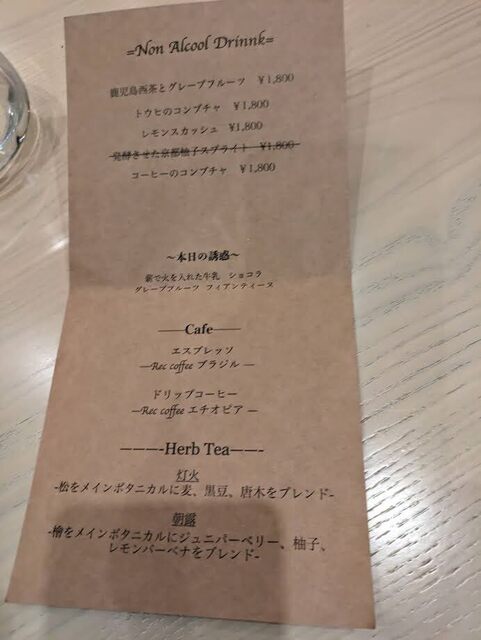 =Non Alcool Drinnk=
鹿児島茜茶とグレープフルーツ ¥1,800
トウヒのコンブチャ ¥1,800
レモンスカッシュ ¥1,800
発酵させた京都柚子スプライト ¥1,800
コーヒーのコンブチャ ¥1,800
〜本日の誘惑〜
薪で火を入れた牛乳 ショコラ
グレープフルーツ フィアンティーヌ
——Cafe——
エスプレッソ
—Rec coffee ブラジル —
ドリップコーヒー
—Rec coffee エチオピア —
———-Herb Tea——-
灯火
-松をメインボタニカルに麦、黒豆、唐木をブレンド-
朝露
-檜をメインボタニカルにジュニパーベリー、柚子、
レモンバーベナをブレンド-